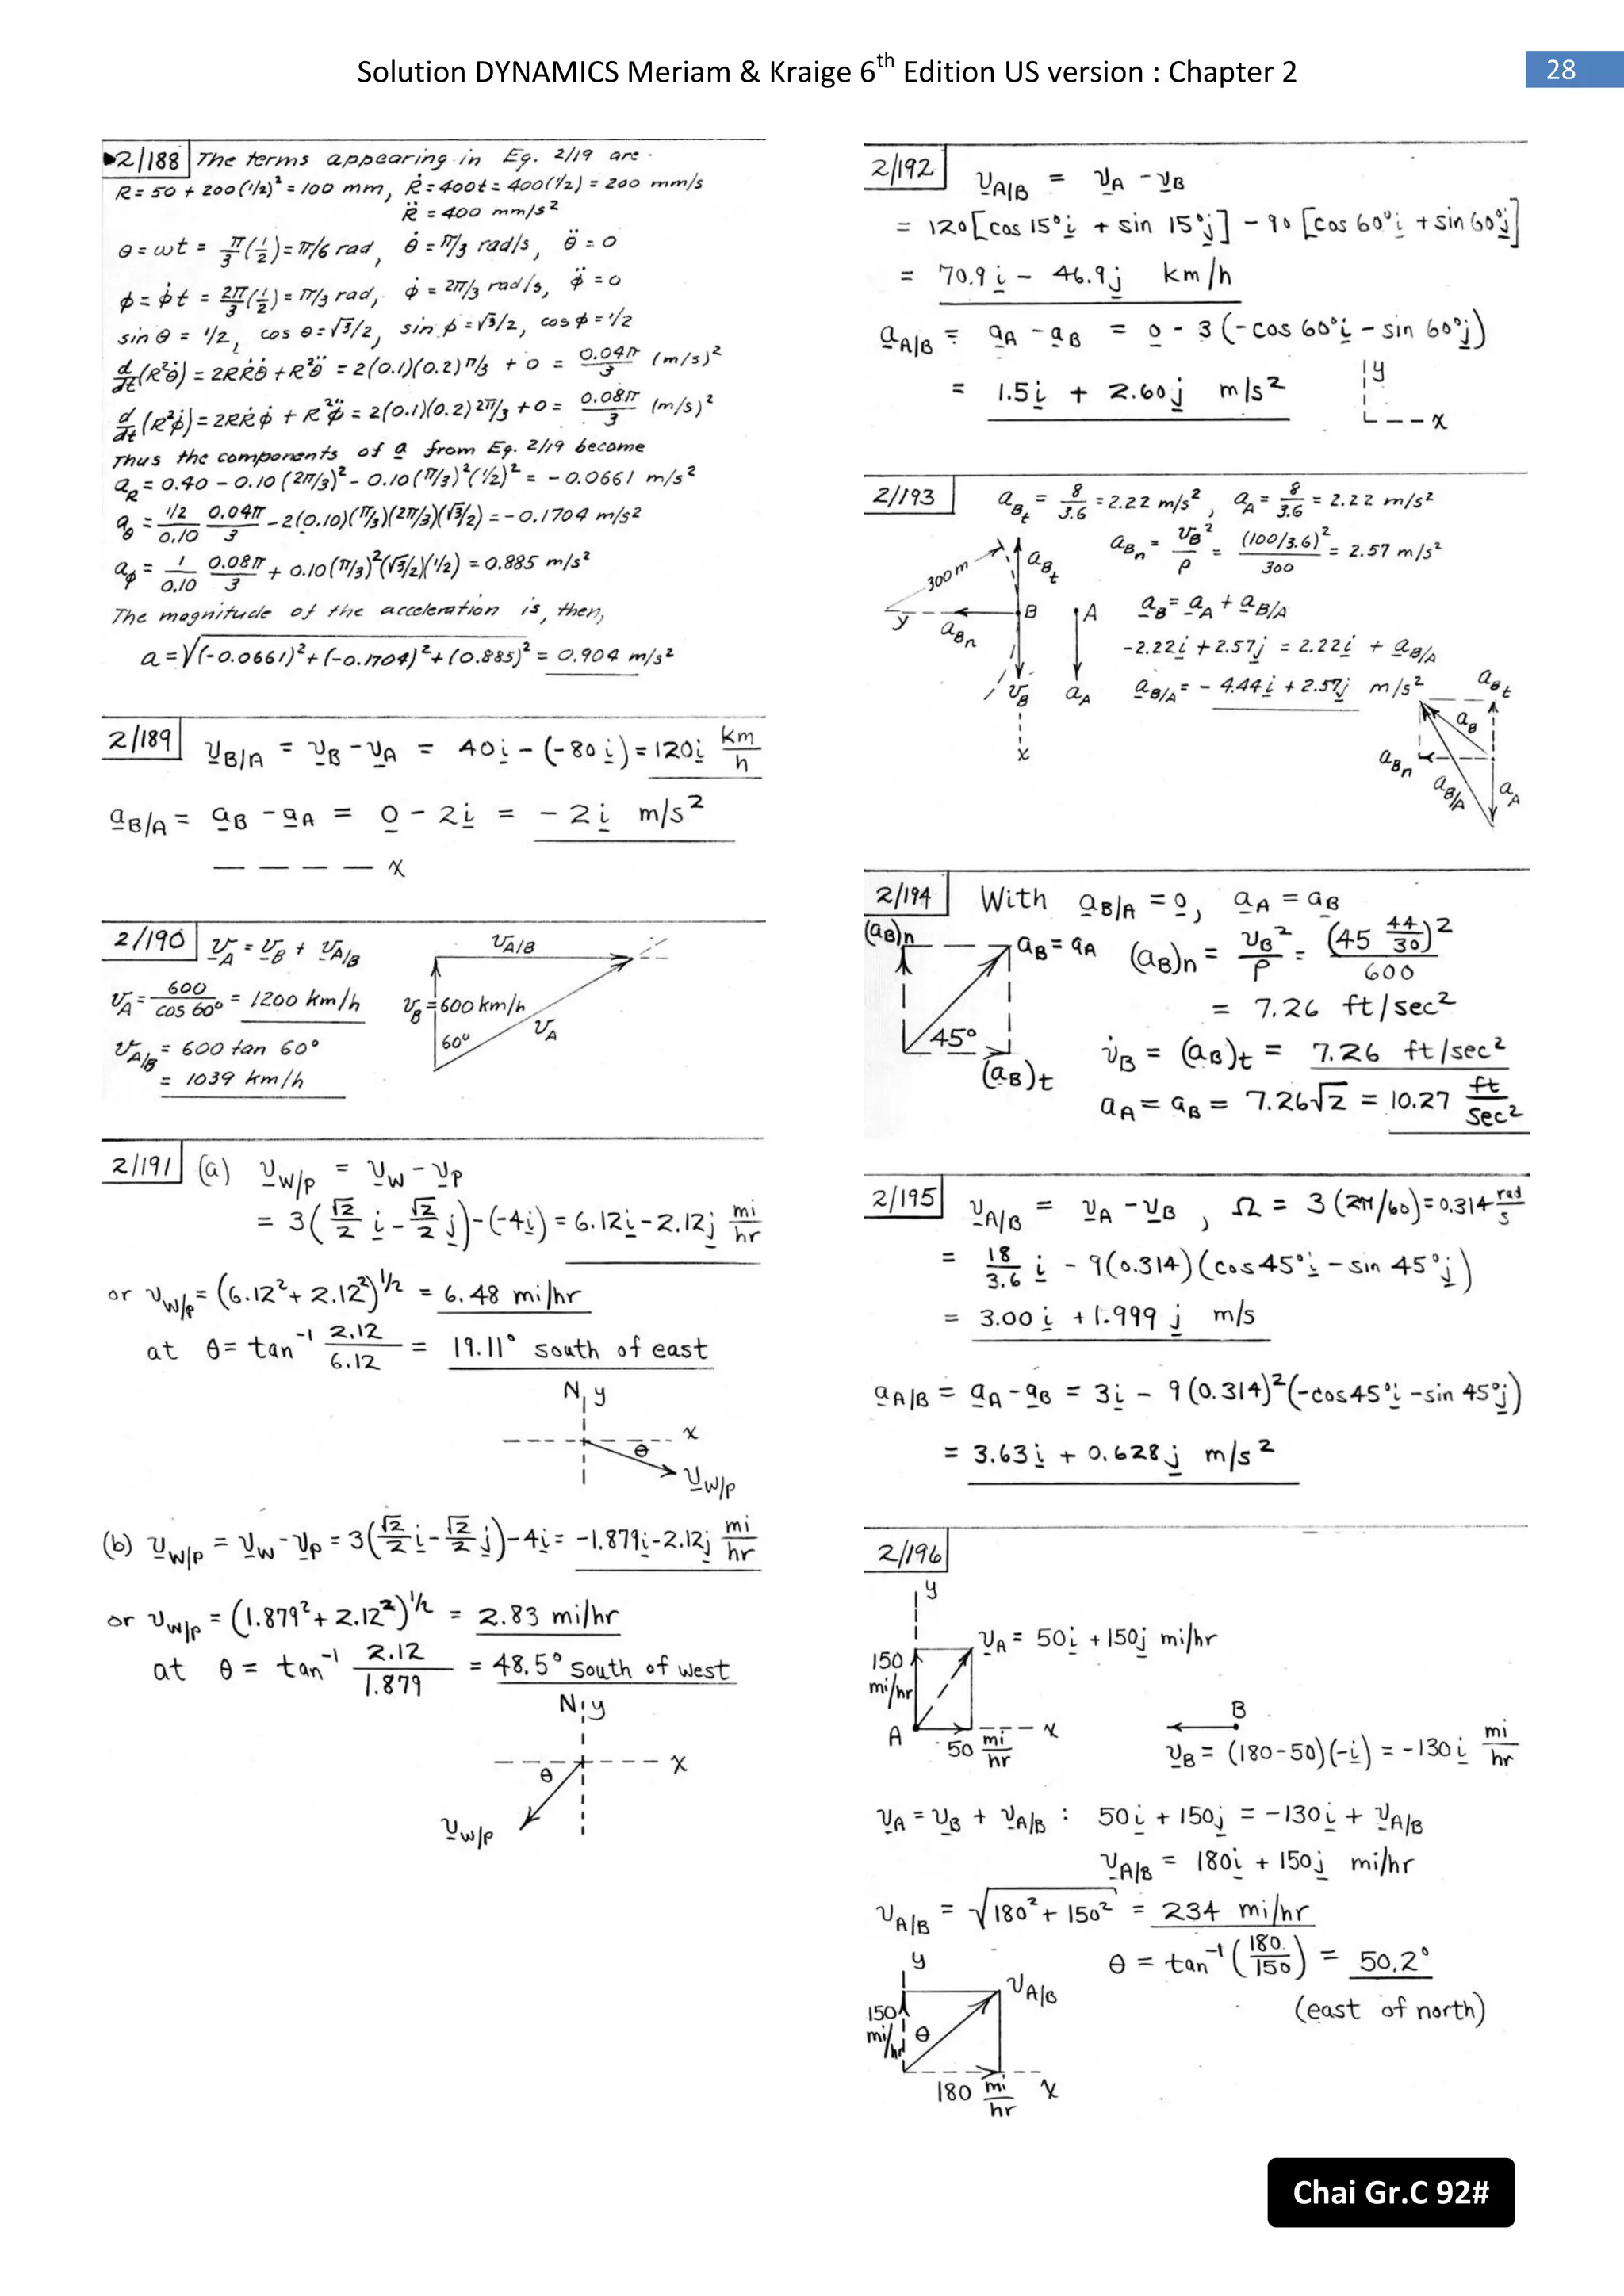 Solution DYNAMICS Meriam & Kraige 6th Edition US version : Chapter 2
28
2/188 The terms appearing in Eq. 2/19 are
R = 50 + 200(1/2)² = 100 mm, Ṙ = 400t = 400(1/2) = 200 mm/s
R̈ = 400 mm/s²
θ = ωt = π/3 (1/2) = π/6 rad, θ̇ = π/3 rad/s, θ̈ = 0
ϕ = ϕ̇t = 2π/3 (1/2) = π/3 rad, ϕ̇ = 2π/3 rad/s, ϕ̈ = 0
sin θ = 1/2, cos θ = √3/2, sin ϕ = √3/2, cos ϕ = 1/2
d/dt (R²θ̇) = 2RṘθ̇ + R²θ̈ = 2(0.1)(0.2) π/3 + 0 = 0.04π/3 (m/s)²
d/dt (R²ϕ̇) = 2RṘϕ̇ + R²ϕ̈ = 2(0.1)(0.2) 2π/3 + 0 = 0.08π/3 (m/s)²
Thus the components of a from Eq. 2/19 become
a_R = 0.40 - 0.10 (2π/3)² - 0.10 (π/3)² (1/2)² = -0.0661 m/s²
a_θ = 1/2/0.10 0.04π/3 - 2(0.10)(π/3)(2π/3)(√3/2) = -0.1704 m/s²
a_ϕ = 1/0.10 0.08π/3 + 0.10(π/3)²(√3/2)(1/2) = 0.885 m/s²
The magnitude of the acceleration is, then,
a = √(-0.0661)² + (-0.1704)² + (0.885)² = 0.904 m/s²
2/189 v_B/A = v_B - v_A = 40i - (-80i) = 120i km/h
a_B/A = a_B - a_A = 0 - 2i = -2i m/s²
x
2/190 v_A = v_B + v_A/B
v_A = 600/cos 60° = 1200 km/h
v_A/B = 600 tan 60°
= 1039 km/h
v_A/B
v_B = 600 km/h
60°
v_A
2/191 (a) v_W/P = v_W - v_P
= 3(√2/2 i - √2/2 j) - (-4i) = 6.12i - 2.12j mi/hr
or v_W/P = (6.12² + 2.12²)^1/2 = 6.48 mi/hr
at θ = tan⁻¹ 2.12/6.12 = 19.11° south of east
N, y
x
θ
v_W/P
(b) v_W/P = v_W - v_P = 3(√2/2 i - √2/2 j) - 4i = -1.879i - 2.12j mi/hr
or v_W/P = (1.879² + 2.12²)^1/2 = 2.83 mi/hr
at θ = tan⁻¹ 2.12/1.879 = 48.5° south of west
N, y
x
θ
v_W/P
2/192 v_A/B = v_A - v_B
= 120[cos 15°i + sin 15°j] - 90 [cos 60°i + sin 60°j]
= 70.9i - 46.9j km/h
a_A/B = a_A - a_B = 0 - 3(-cos 60°i - sin 60°j)
= 1.5i + 2.60j m/s²
y
x
2/193 a_Bt = 8/3.6 = 2.22 m/s², a_A = 8/3.6 = 2.22 m/s²
a_Bn = v_B²/ρ = (100/3.6)²/300 = 2.57 m/s²
300 m
a_Bt
y
a_Bn
B
A
v_B
a_A
x
a_B = a_A + a_B/A
-2.22i + 2.57j = 2.22i + a_B/A
a_B/A = -4.44i + 2.57j m/s²
a_Bt
a_B
a_Bn
a_B/A
a_A
2/194 With a_B/A = 0, a_A = a_B
(a_B)n
a_B = a_A
45°
(a_B)t
(a_B)n = v_B²/ρ = (45 44/30)²/600
= 7.26 ft/sec²
v̇_B = (a_B)t = 7.26 ft/sec²
a_A = a_B = 7.26√2 = 10.27 ft/sec²
2/195 v_A/B = v_A - v_B, Ω = 3(2π/60) = 0.314 rad/s
= 18/3.6 i - 9(0.314)(cos 45°i - sin 45°j)
= 3.00i + 1.999j m/s
a_A/B = a_A - a_B = 3i - 9(0.314)²(-cos 45°i - sin 45°j)
= 3.63i + 0.628j m/s²
2/196
y
150 mi/hr
v_A = 50i + 150j mi/hr
A
50 mi/hr
x
B
v_B = (180-50)(-i) = -130i mi/hr
v_A = v_B + v_A/B : 50i + 150j = -130i + v_A/B
v_A/B = 180i + 150j mi/hr
v_A/B = √180² + 150² = 234 mi/hr
θ = tan⁻¹(180/150) = 50.2°
(east of north)
y
v_A/B
150 mi/hr
θ
180 mi/hr
x
Chai Gr.C 92#